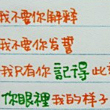 我不要你解釋
我不要你發誓
我只有你記得此
你眼裡我的样